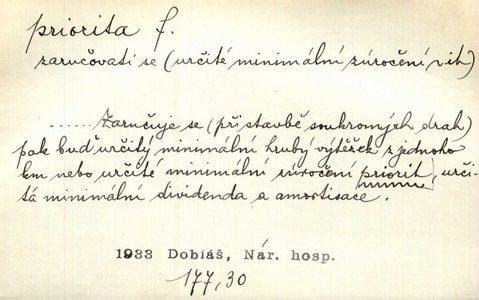 priorita f.
zaručovati se (určité minimální zúročení -it)
...... Zaručuje se (při stavbě soukromých drah)
pak buď určitý minimální hrubý výtěžek z jednoho
km nebo určité minimální zúročení priorit, urči-
tá minimální dividenda a amortisace.
1933 Dobiáš, Nár. hosp.
177,30